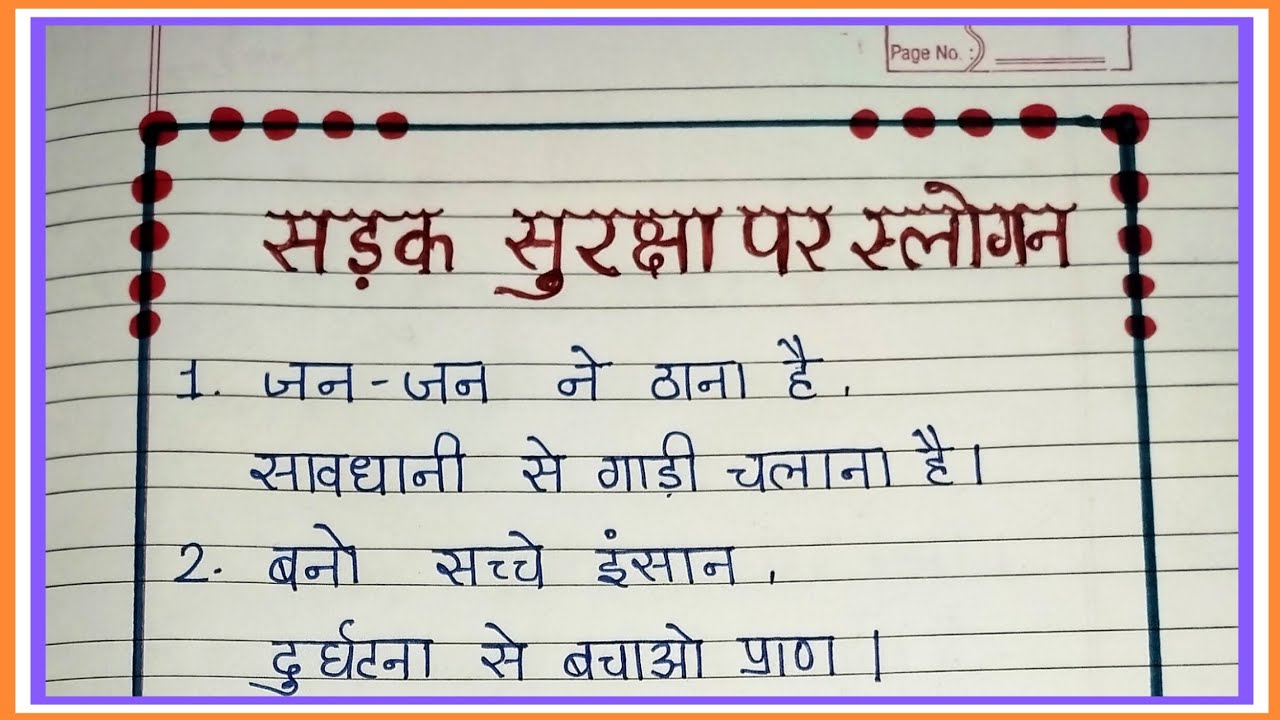 Page No. :
सड़क सुरक्षा पर स्लोगन
1. जन-जन ने ठाना है,
सावधानी से गाड़ी चलाना है।
2. बनो सच्चे इंसान,
दुर्घटना से बचाओ प्राण।